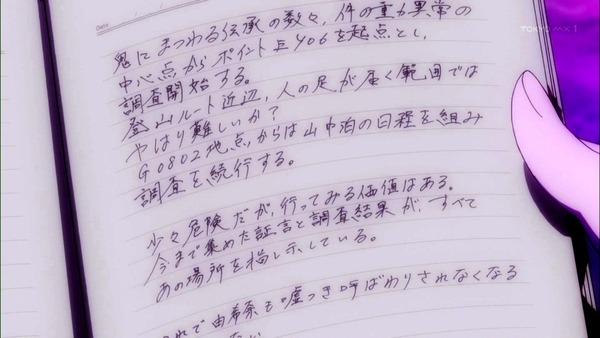 TOKYO MX 1
Date
鬼にまつわる伝承の数々、件の重力異常の
中心点からポイントE406を起点とし、
調査開始する。
登山ルート近辺、人の足が届く範囲では
やはり難しいか?
G0802地点からは山中泊の日程を組み
調査を続行する。
少々危険だが、行ってみる価値はある。
今まで集めた証言と調査結果が、すべて
あの場所を指し示している。
れで由希奈も嘘つき呼ばわりされなくなる